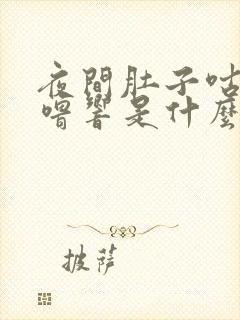 夜間肚子咕
嚕響是什麼
披薩